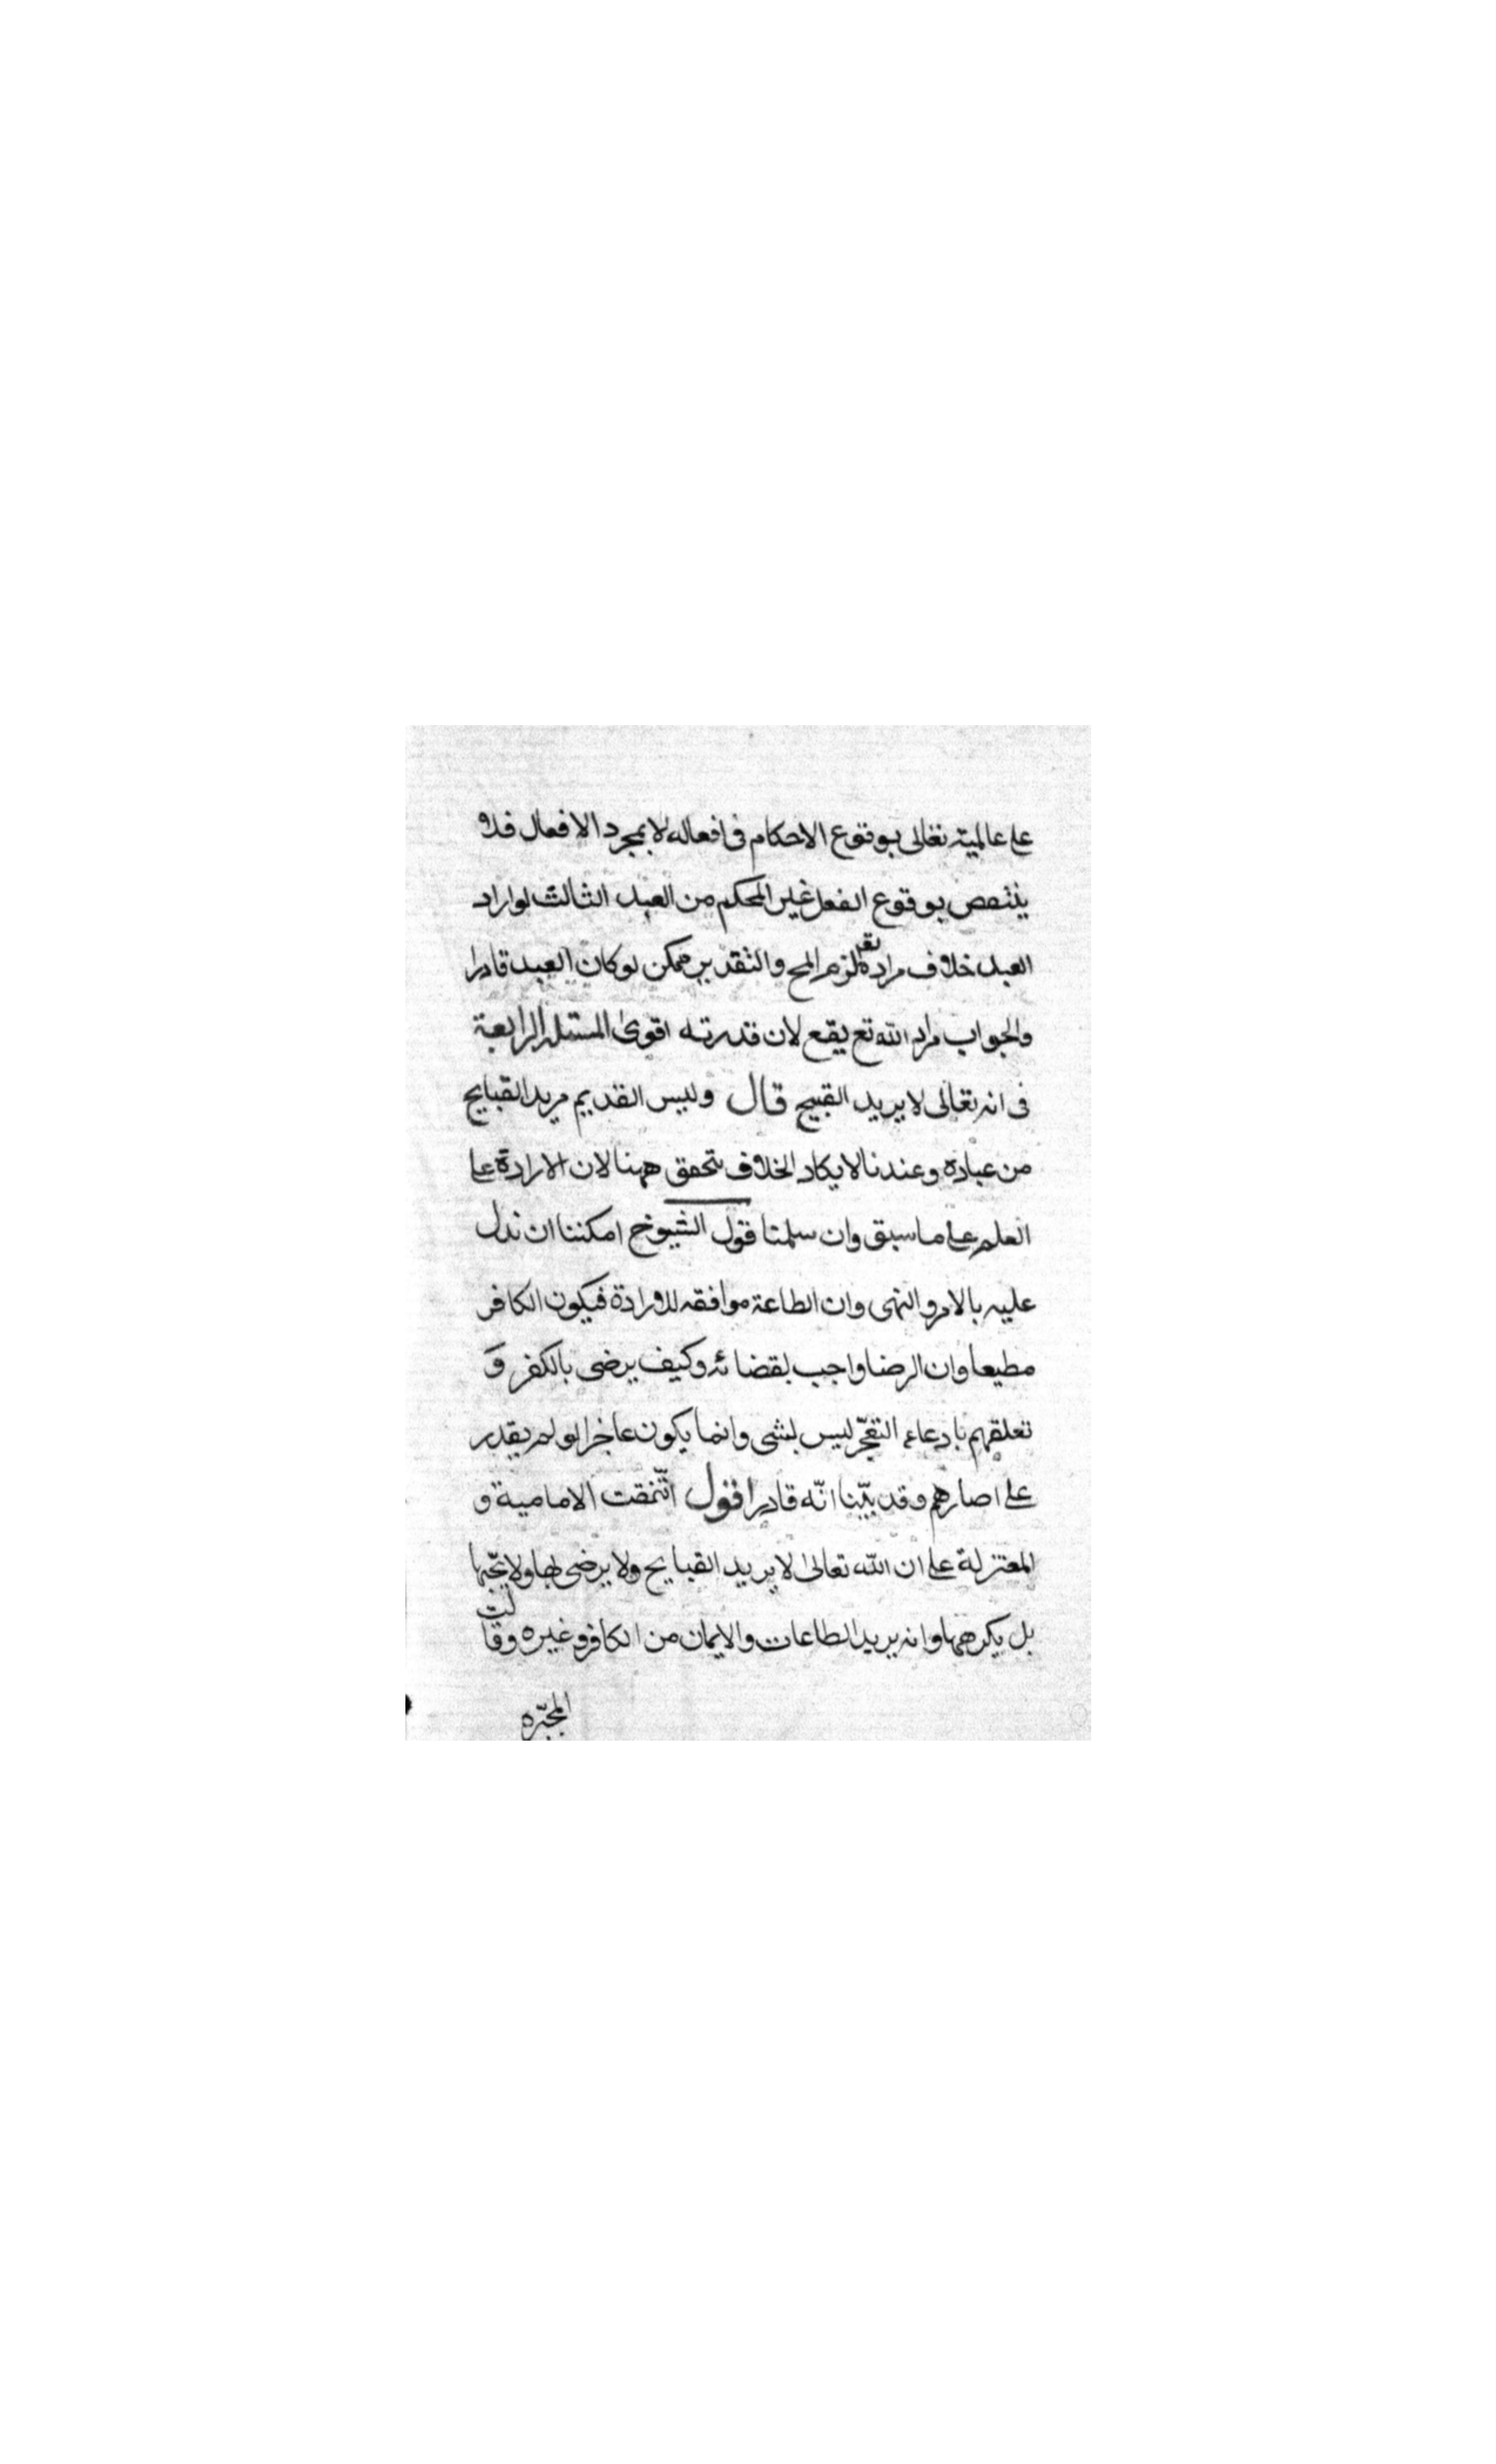 على عالميته تعالى بوقوع الاحكام فى افعاله لا بمجرد الافعال فلا
ينتقض بوقوع الفعل غير المحكم من العبد الثالث لو اراد
العبد خلاف مراده تع لزم المح والتقدير ممكن لو كان العبد قادرا
والجواب مراد الله تع يقع لان قدرته اقوى المسئلة الرابعة
فى انه تعالى لا يريد القبيح قال وليس القديم مريد القبايح
من عباده وعندنا لا يكاد الخلاف يتحقق ههنا لان الارادة على
العلم على ما سبق وان سلمنا قول الشيوخ امكننا ان ندل
عليه بالامر والنهى وان الطاعة موافقه للارادة فيكون الكافر
مطيعا وان الرضا واجب بقضائه وكيف يرضى بالكفر و
تعلقهم بادعاء التعجّز ليس بشى وانما يكون عاجزا لو لم يقدر
على اصارهم وقد بيّنا انّه قادر اقول اتّفقت الامامية و
المعتزلة على ان الله تعالى لا يريد القبايح ولا يرضى بها ولا يحّبها
بل يكرهها وانه يريد الطاعات والايمان من الكافر وغيره وقالت
المجبّره